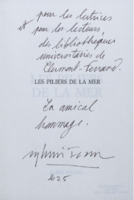 pour les lectures
pour les lecteurs,
des bibliothèques
universitaires de
Clermont-Ferrand.
LES PILIERS DE LA MER
DE LA MER
En amical
hommage.